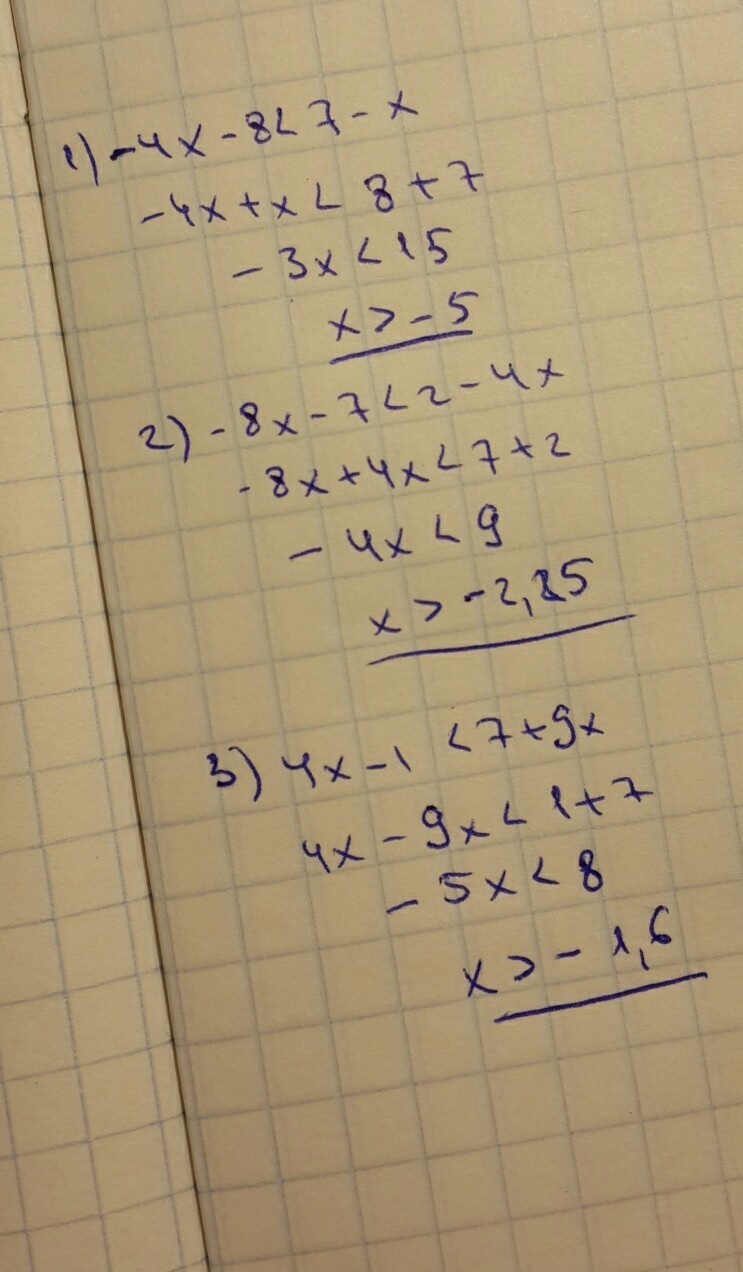 1) -4x - 8 < 7 - x
-4x + x < 8 + 7
- 3x < 15
x > - 5
2) - 8x - 7 < 2 - 4x
- 8x + 4x < 7 + 2
- 4x < 9
x > - 2,25
3) 4x - 1 < 7 + 9x
4x - 9x < 1 + 7
- 5x < 8
x > - 1,6